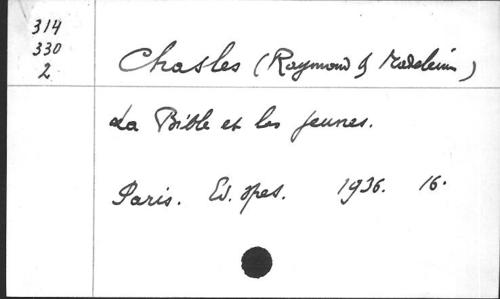 314
330
2
Chasles (Raymond & Madeleine)
La Bible et les jeunes.
Paris. Ed. Spes. 1936. 16.